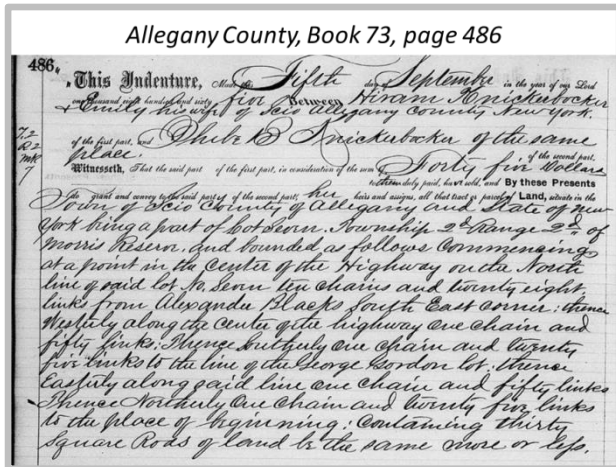 Allegany County, Book 73, page 486
486.
This Indenture, Made the Fifth day of September in the year of our Lord
one thousand eight hundred and sixty five Between Hiram Knickerbocker
& Emily his wife of Scio Allegany County New York.
of the first part, and Phebe B Knickerbocker of the same
place. of the second part,
Witnesseth, That the said part of the first part, in consideration of the sum of Forty five Dollars
to them duly paid, have sold, and By these Presents
do grant and convey to the said party of the second part, her heirs and assigns, all that tract or parcel of Land, situate in the
Town of Scio County of Allegany and State of New
York being a part of Lot Seven. Township 2d Range 2d of
Morris Reserve, and bounded as follows Commencing
at a point in the Center of the Highway on the North
line of said lot No. Seven ten chains and twenty eight
links from Alexander Blacks South East corner; thence
Westerly along the center of the highway one chain and
fifty links; Thence Southerly one chain and twenty
five links to the line of the George Gordon lot, thence
Easterly along said line one chain and fifty links
Thence Northerly one chain and twenty five links
to the place of beginning: Containing thirty
Square Rods of land be the same more or less.
T.2
R 2
MR
7